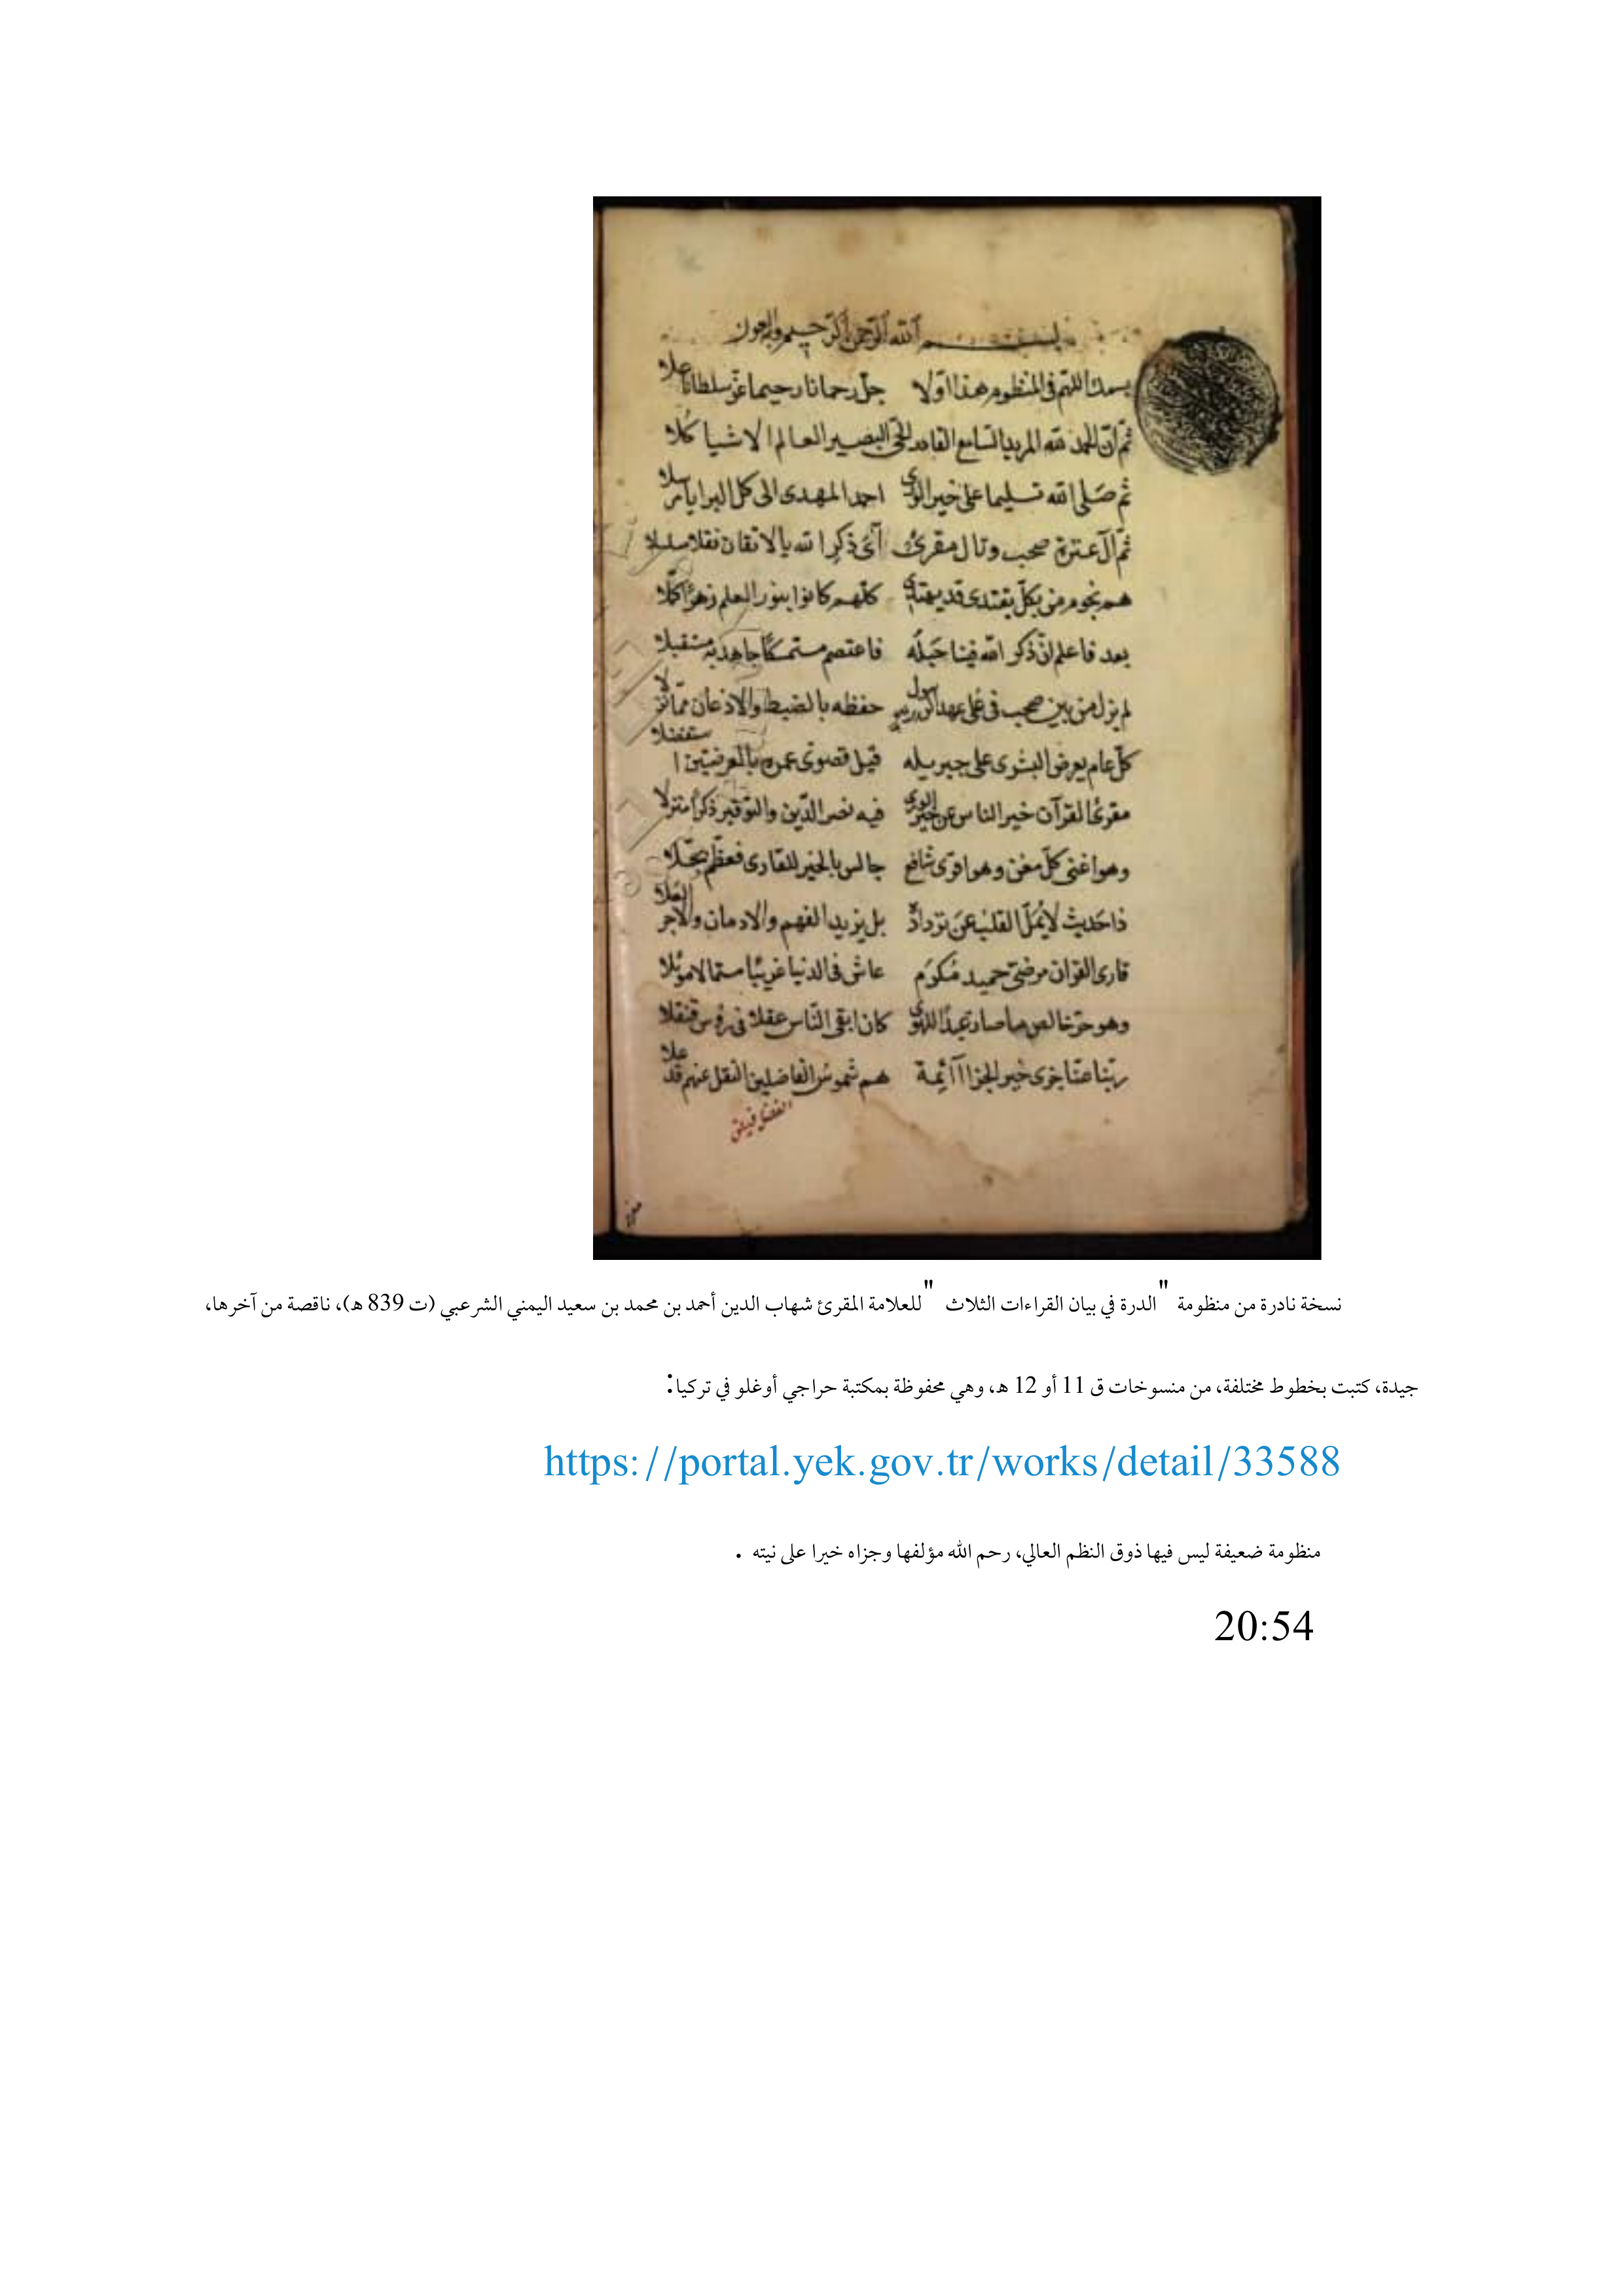 بسم الله الرحمن الرحيم وبه العون
بسمك اللهم في المنظوم هذا اولا جل رحمانا رحيما عز سلطانا علا
ثم ان الحمد لله المريد السامع القادر الحي البصير العالم الاشيا كلا
ثم صلى الله تسليما على خير الورى احمد المهدى الى كل البرايا مرسلا
ثم آل عترة صحب وتال مقرئ آى ذكر الله بالاتقان نقلا سلسلا
هم نجوم من بكل يقتدى قد يهتدى كلهم كانوا بنور العلم زهرا كملا
بعد فاعلم ان ذكر الله فينا حبله فاعتصم مستمسكا جاهد به مستقبلا
لم يزل من بين صحب في على عهد الرسول حفظه بالضبط والاذعان مما
كل عام يعرض البشرى على جبريله قيل قصوى عمره بالعرضتين ا ستفضلا
مقرئ القرآن خير الناس عن خير الورى فيه نص الدين والتوقير ذكرا منزلا
وهو اغنى كل مغن وهو اقوى شافع جالس بالخير للقارى فعظم
ذا حديث لا يمل القلب عن ترداده بل يزيد الفهم والادمان والاجر العلا
قارى القران مرضى حميد مكرم عاش في الدنيا غريبا
وهو حر خالص ما صار عبدا للهوى كان ابقى الناس عقلا
ربنا عنا جزى خير الجزا آئمة هم شموس الفاضلين النقل عنهم قد علا
نسخة نادرة من منظومة "الدرة في بيان القراءات الثلاث "للعلامة المقرئ شهاب الدين أحمد بن محمد بن سعيد اليمني الشرعبي (ت 839 ه)، ناقصة من آخرها،
جيدة، كتبت بخطوط مختلفة، من منسوخات ق 11 أو 12 ه، وهي محفوظة بمكتبة حراجي أوغلو في تركيا:
https://portal.yek.gov.tr/works/detail/33588
منظومة ضعيفة ليس فيها ذوق النظم العالي، رحم الله مؤلفها وجزاه خيرا على نيته .
20:54